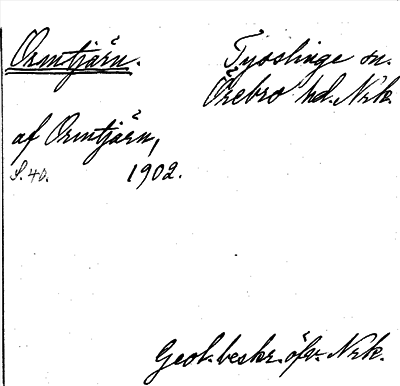 Ormtjärn. Tysslinge sn.
Örebro hd. Nrk.
af Ormtjärn,
S. 40. 1902.
Geol. beskr. öfv. Nrk.